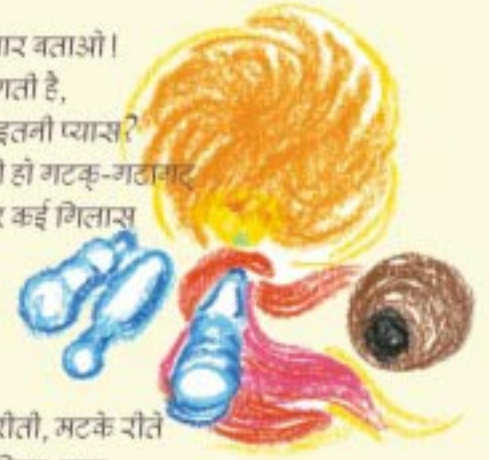 ार बताओ!
गती है,
इतनी प्यास?
ी हो गटक्-गटागट्
र कई गिलास
रीती, मटके रीते